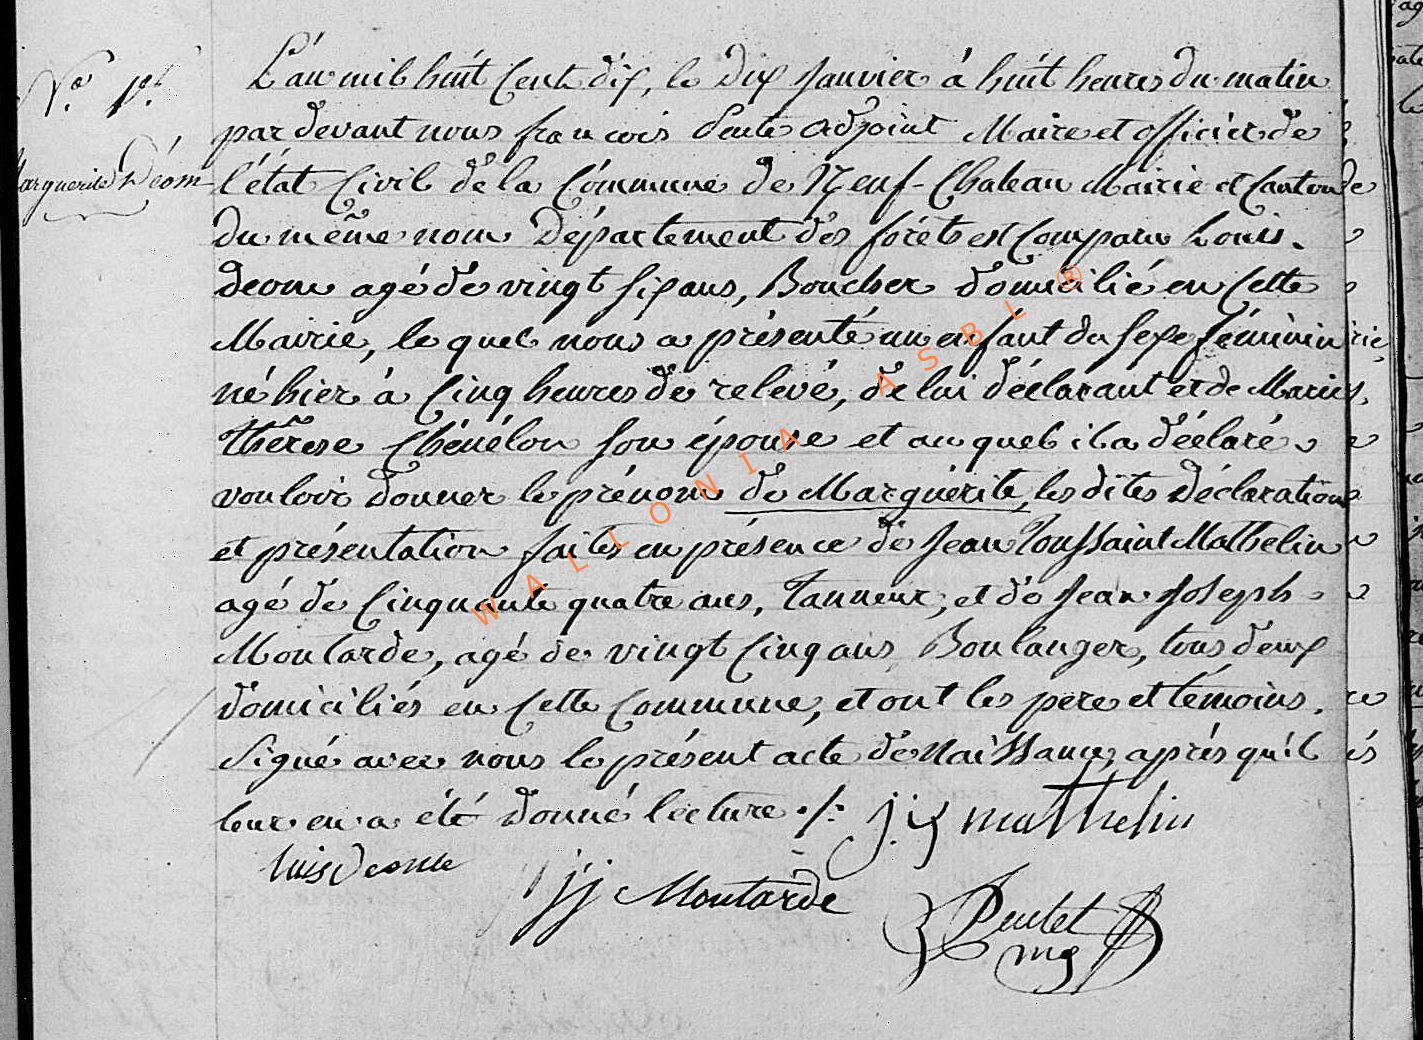 N.º 1.er
Marguerite Déom
L'an mil huit Cent dix, le Dix Janvier à huit heures du matin
par devant nous françois adjoint Maire et officier de
l'état Civil dela Commune de Neuf-Chateau Mairie et Canton de
du même nom Département des forêts est Comparu Louis
deom agé de vingt six ans, Boucher domicilié en Cette
Mairie, le quel nous a présenté un enfant du sexe féminin
né hier à Cinq heures de relevé, de lui déclarant et de Marie
thérese Chénélon son épouse et au quel il a déclaré
vouloir donner le prénom de Marguérite, les dites déclaration
et présentation faites en présence de Jean Toussaint Mathelin
agé de Cinquante quatre ans, Tanneur, et de Jean Joseph
Moutarde, agé de vingt Cinq ans Boulanger, tous deux
domiciliés en Cette Commune, et ont les pere et témoins.
Signé avec nous le présent acte de Naissance, après qu'il
leur en a été donné lecture ./:
j. mathelin
luis deome
jj Moutarde
WALLONIA ASBL ®